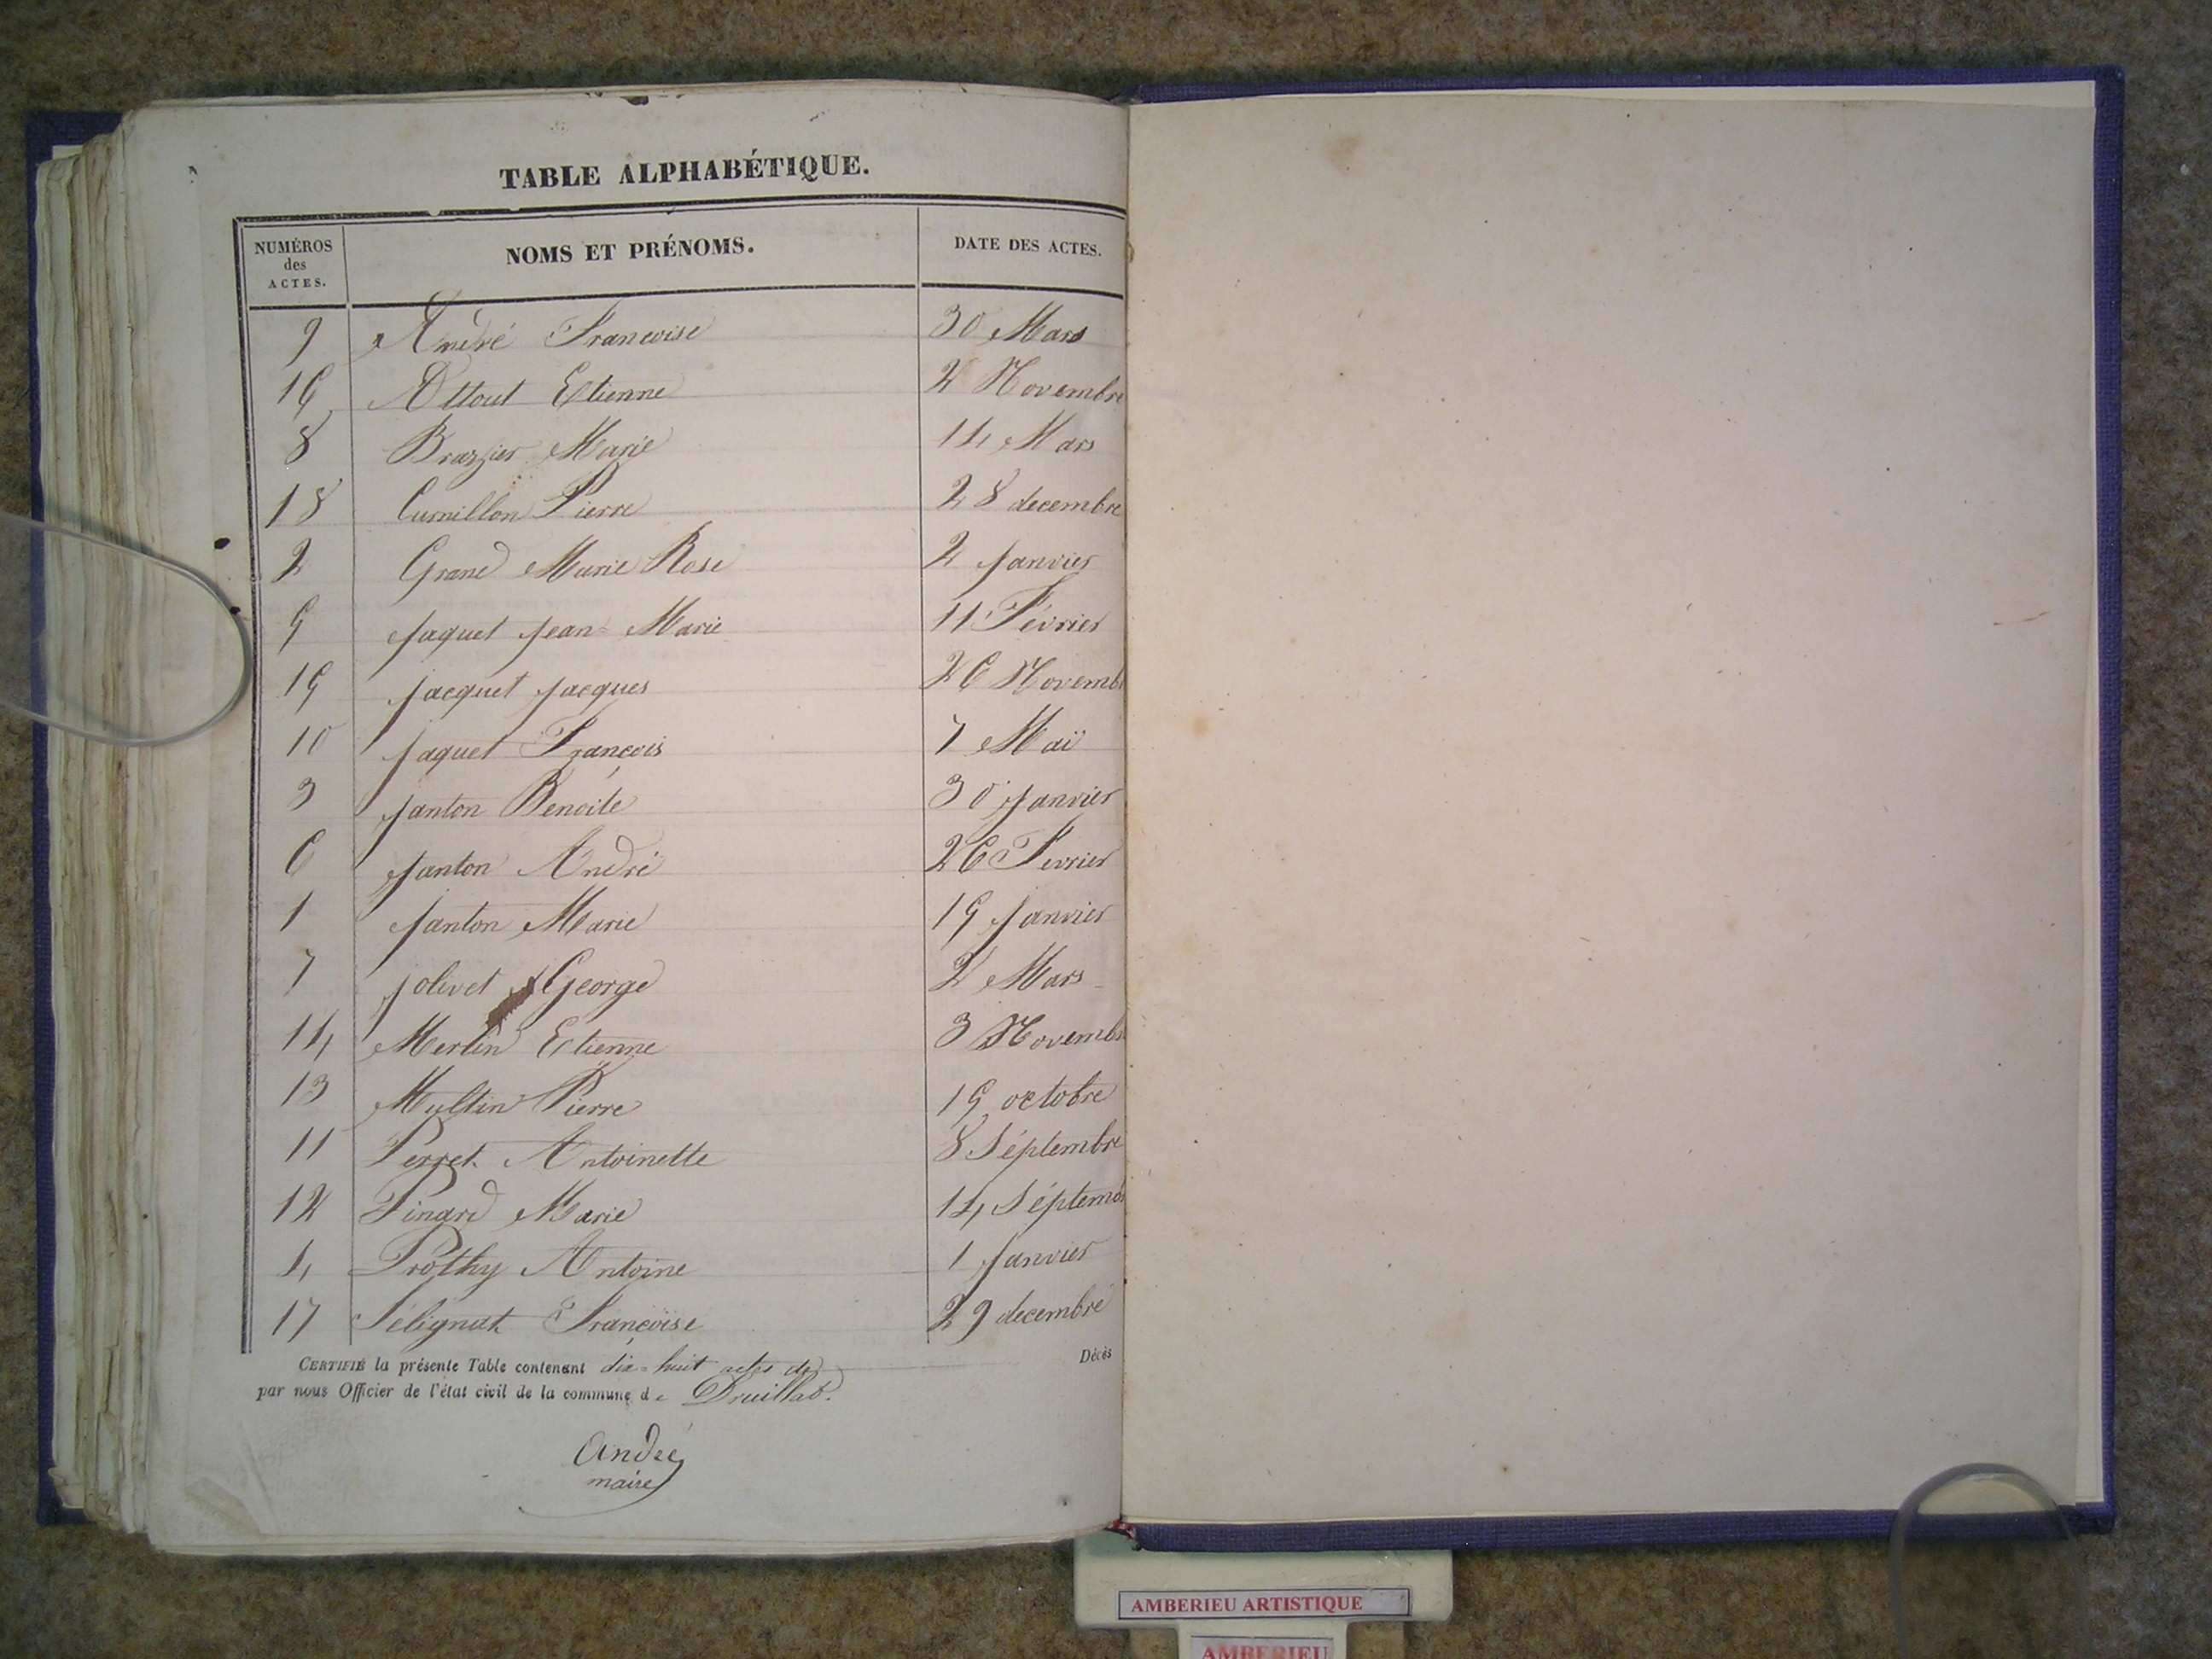 TABLE ALPHABÉTIQUE.
NUMÉROS des ACTES. NOMS ET PRÉNOMS. DATE DES ACTES.
9 André Francoise 30 Mars
16 Attout Etienne 2 Novembre
8 Brazier Marie 14 Mars
18 Curnillon Pierre 28 decembre
2 Grand Marie Rose 2 Janvier
5 Jaquet Jean-Marie 11 Février
15 Jacquet Jacques 26 Novemb
10 Jaquet François 7 Mai
3 Janton Benoite 30 Janvier
6 Janton André 26 Fevrier
1 Janton Marie 15 Janvier
7 Jolivet George 2 Mars
14 Merlin Etienne 3 Novembr
13 Multin Pierre 15 octobre
11 Perret Antoinette 8 Séptembre
12 Pinard Marie 14 Séptemb
4 Prothy Antoine 1 Janvier
17 Sélignat Françoise 29 decembre
CERTIFIÉ la présente Table contenant dix-huit actes de Décès
par nous Officier de l'état civil de la commune de Druillat.
André
maire
AMBERIEU ARTISTIQUE
AMBERIEU